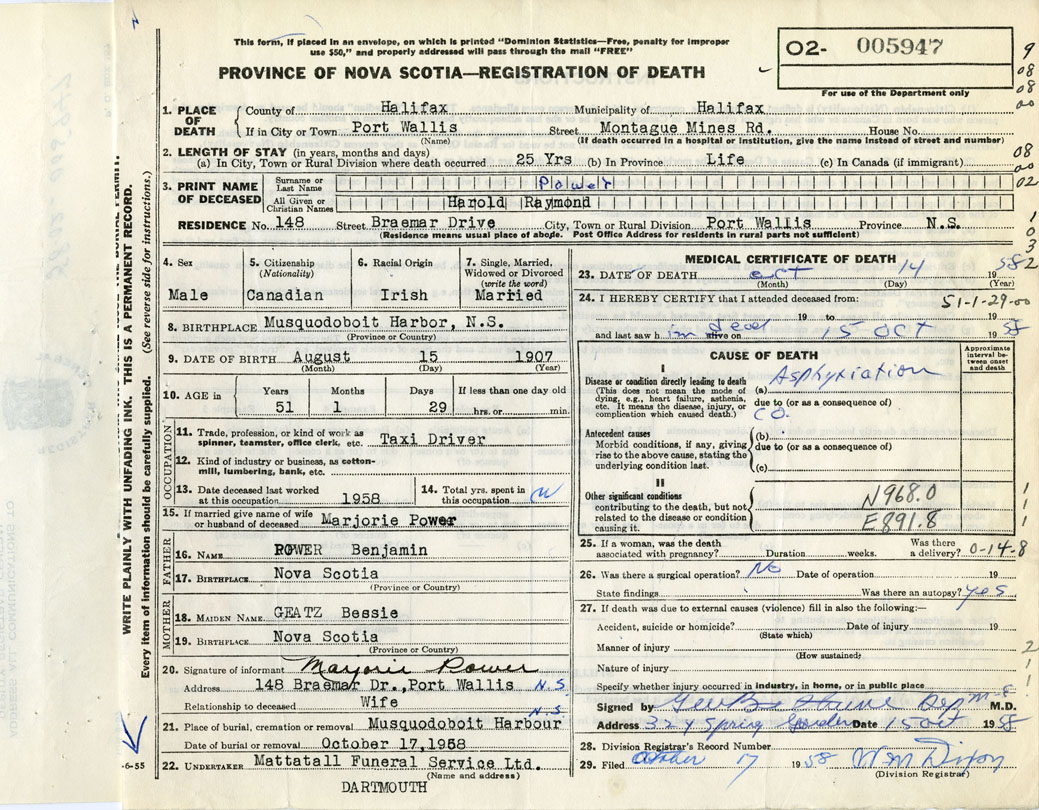 This form, if placed in an envelope, on which is printed "Dominion Statistics—Free, penalty for improper
use $50," and properly addressed will pass through the mail "FREE"
PROVINCE OF NOVA SCOTIA—REGISTRATION OF DEATH
O2- 005947
For use of the Department only
1. PLACE OF DEATH County of Halifax Municipality of Halifax
If in City or Town Port Wallis Street Montague Mines Rd. House No.
(Name) (If death occurred in a hospital or institution, give the name instead of street and number)
2. LENGTH OF STAY (in years, months and days)
(a) In City, Town or Rural Division where death occurred 25 Yrs (b) In Province Life (c) In Canada (if immigrant)
3. PRINT NAME OF DECEASED Surname or Last Name Power
All Given or Christian Names Harold Raymond
RESIDENCE No. 148 Street Braemar Drive City, Town or Rural Division Port Wallis Province N.S.
(Residence means usual place of abode. Post Office Address for residents in rural parts not sufficient)
4. Sex Male
5. Citizenship (Nationality) Canadian
6. Racial Origin Irish
7. Single, Married, Widowed or Divorced (write the word) Married
8. BIRTHPLACE Musquodoboit Harbor, N.S.
(Province or Country)
9. DATE OF BIRTH August 15 1907
(Month) (Day) (Year)
10. AGE in Years 51 Months 1 Days 29 If less than one day old hrs. or min.
OCCUPATION
11. Trade, profession, or kind of work as spinner, teamster, office clerk, etc. Taxi Driver
12. Kind of industry or business, as cotton-mill, lumbering, bank, etc.
13. Date deceased last worked at this occupation 1958
14. Total yrs. spent in this occupation
15. If married give name of wife or husband of deceased Marjorie Power
FATHER
16. NAME POWER Benjamin
17. BIRTHPLACE Nova Scotia
(Province or Country)
MOTHER
18. MAIDEN NAME GEATZ Bessie
19. BIRTHPLACE Nova Scotia
(Province or Country)
20. Signature of informant Marjorie Power
Address 148 Braemar Dr., Port Wallis N.S
Relationship to deceased Wife
21. Place of burial, cremation or removal Musquodoboit Harbour N.S
Date of burial or removal October 17, 1958
22. UNDERTAKER Mattatall Funeral Service Ltd.
(Name and address)
DARTMOUTH
MEDICAL CERTIFICATE OF DEATH
23. DATE OF DEATH Oct 14 19 58
(Month) (Day) (Year)
24. I HEREBY CERTIFY that I attended deceased from: 51-1-29-00
19 to 19
and last saw h im dead alive on 15 OCT 19 58
CAUSE OF DEATH
Approximate interval between onset and death
I
Disease or condition directly leading to death
(This does not mean the mode of dying, e.g., heart failure, asthenia, etc. It means the disease, injury, or complication which caused death.)
(a) Asphyxiation
due to (or as a consequence of)
CO.
Antecedent causes
Morbid conditions, if any, giving rise to the above cause, stating the underlying condition last.
(b)
due to (or as a consequence of)
(c)
II
Other significant conditions contributing to the death, but not related to the disease or condition causing it.
N968.0
E891.8
25. If a woman, was the death associated with pregnancy? Duration weeks. Was there a delivery? 0-14-8
26. Was there a surgical operation? No Date of operation 19
State findings Was there an autopsy? yes
27. If death was due to external causes (violence) fill in also the following:—
Accident, suicide or homicide? Date of injury 19
(State which)
Manner of injury
(How sustained?)
Nature of injury
Specify whether injury occurred in industry, in home, or in public place
Signed by M.D.
Address 324 Spring Garden Date 15 Oct 1958
28. Division Registrar's Record Number
29. Filed October 17 1958 Wm Dixon
(Division Registrar)
WRITE PLAINLY WITH UNFADING INK. THIS IS A PERMANENT RECORD.
Every item of information should be carefully supplied. (See reverse side for instructions.)
-6-55
9
08
08
00
08
00
02
1
0
3
2
1
1
1
2
1
1